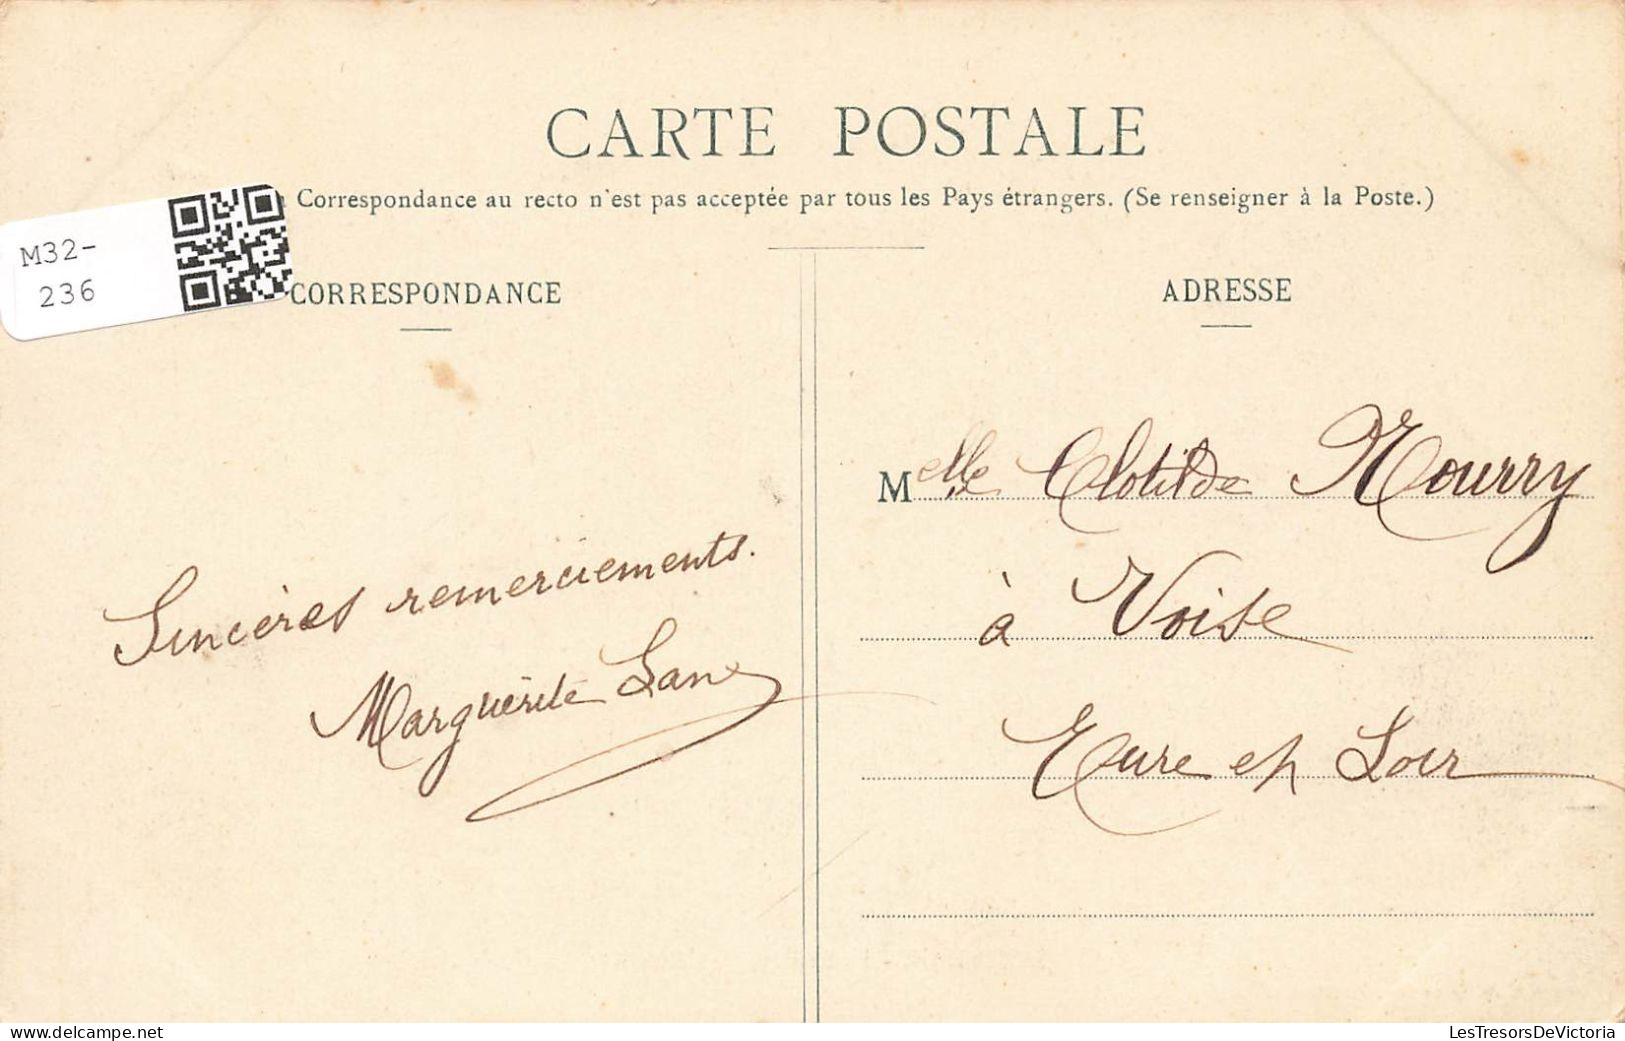 CARTE POSTALE
Correspondance au recto n'est pas acceptée par tous les Pays étrangers. (Se renseigner à la Poste.)
M32-
236
CORRESPONDANCE
Sincères remerciements.
Marguerite
ADRESSE
Melle Clotilde Nourry
à Voise
Eure et Loir
www.delcampe.net
LesTresorsDeVictoria